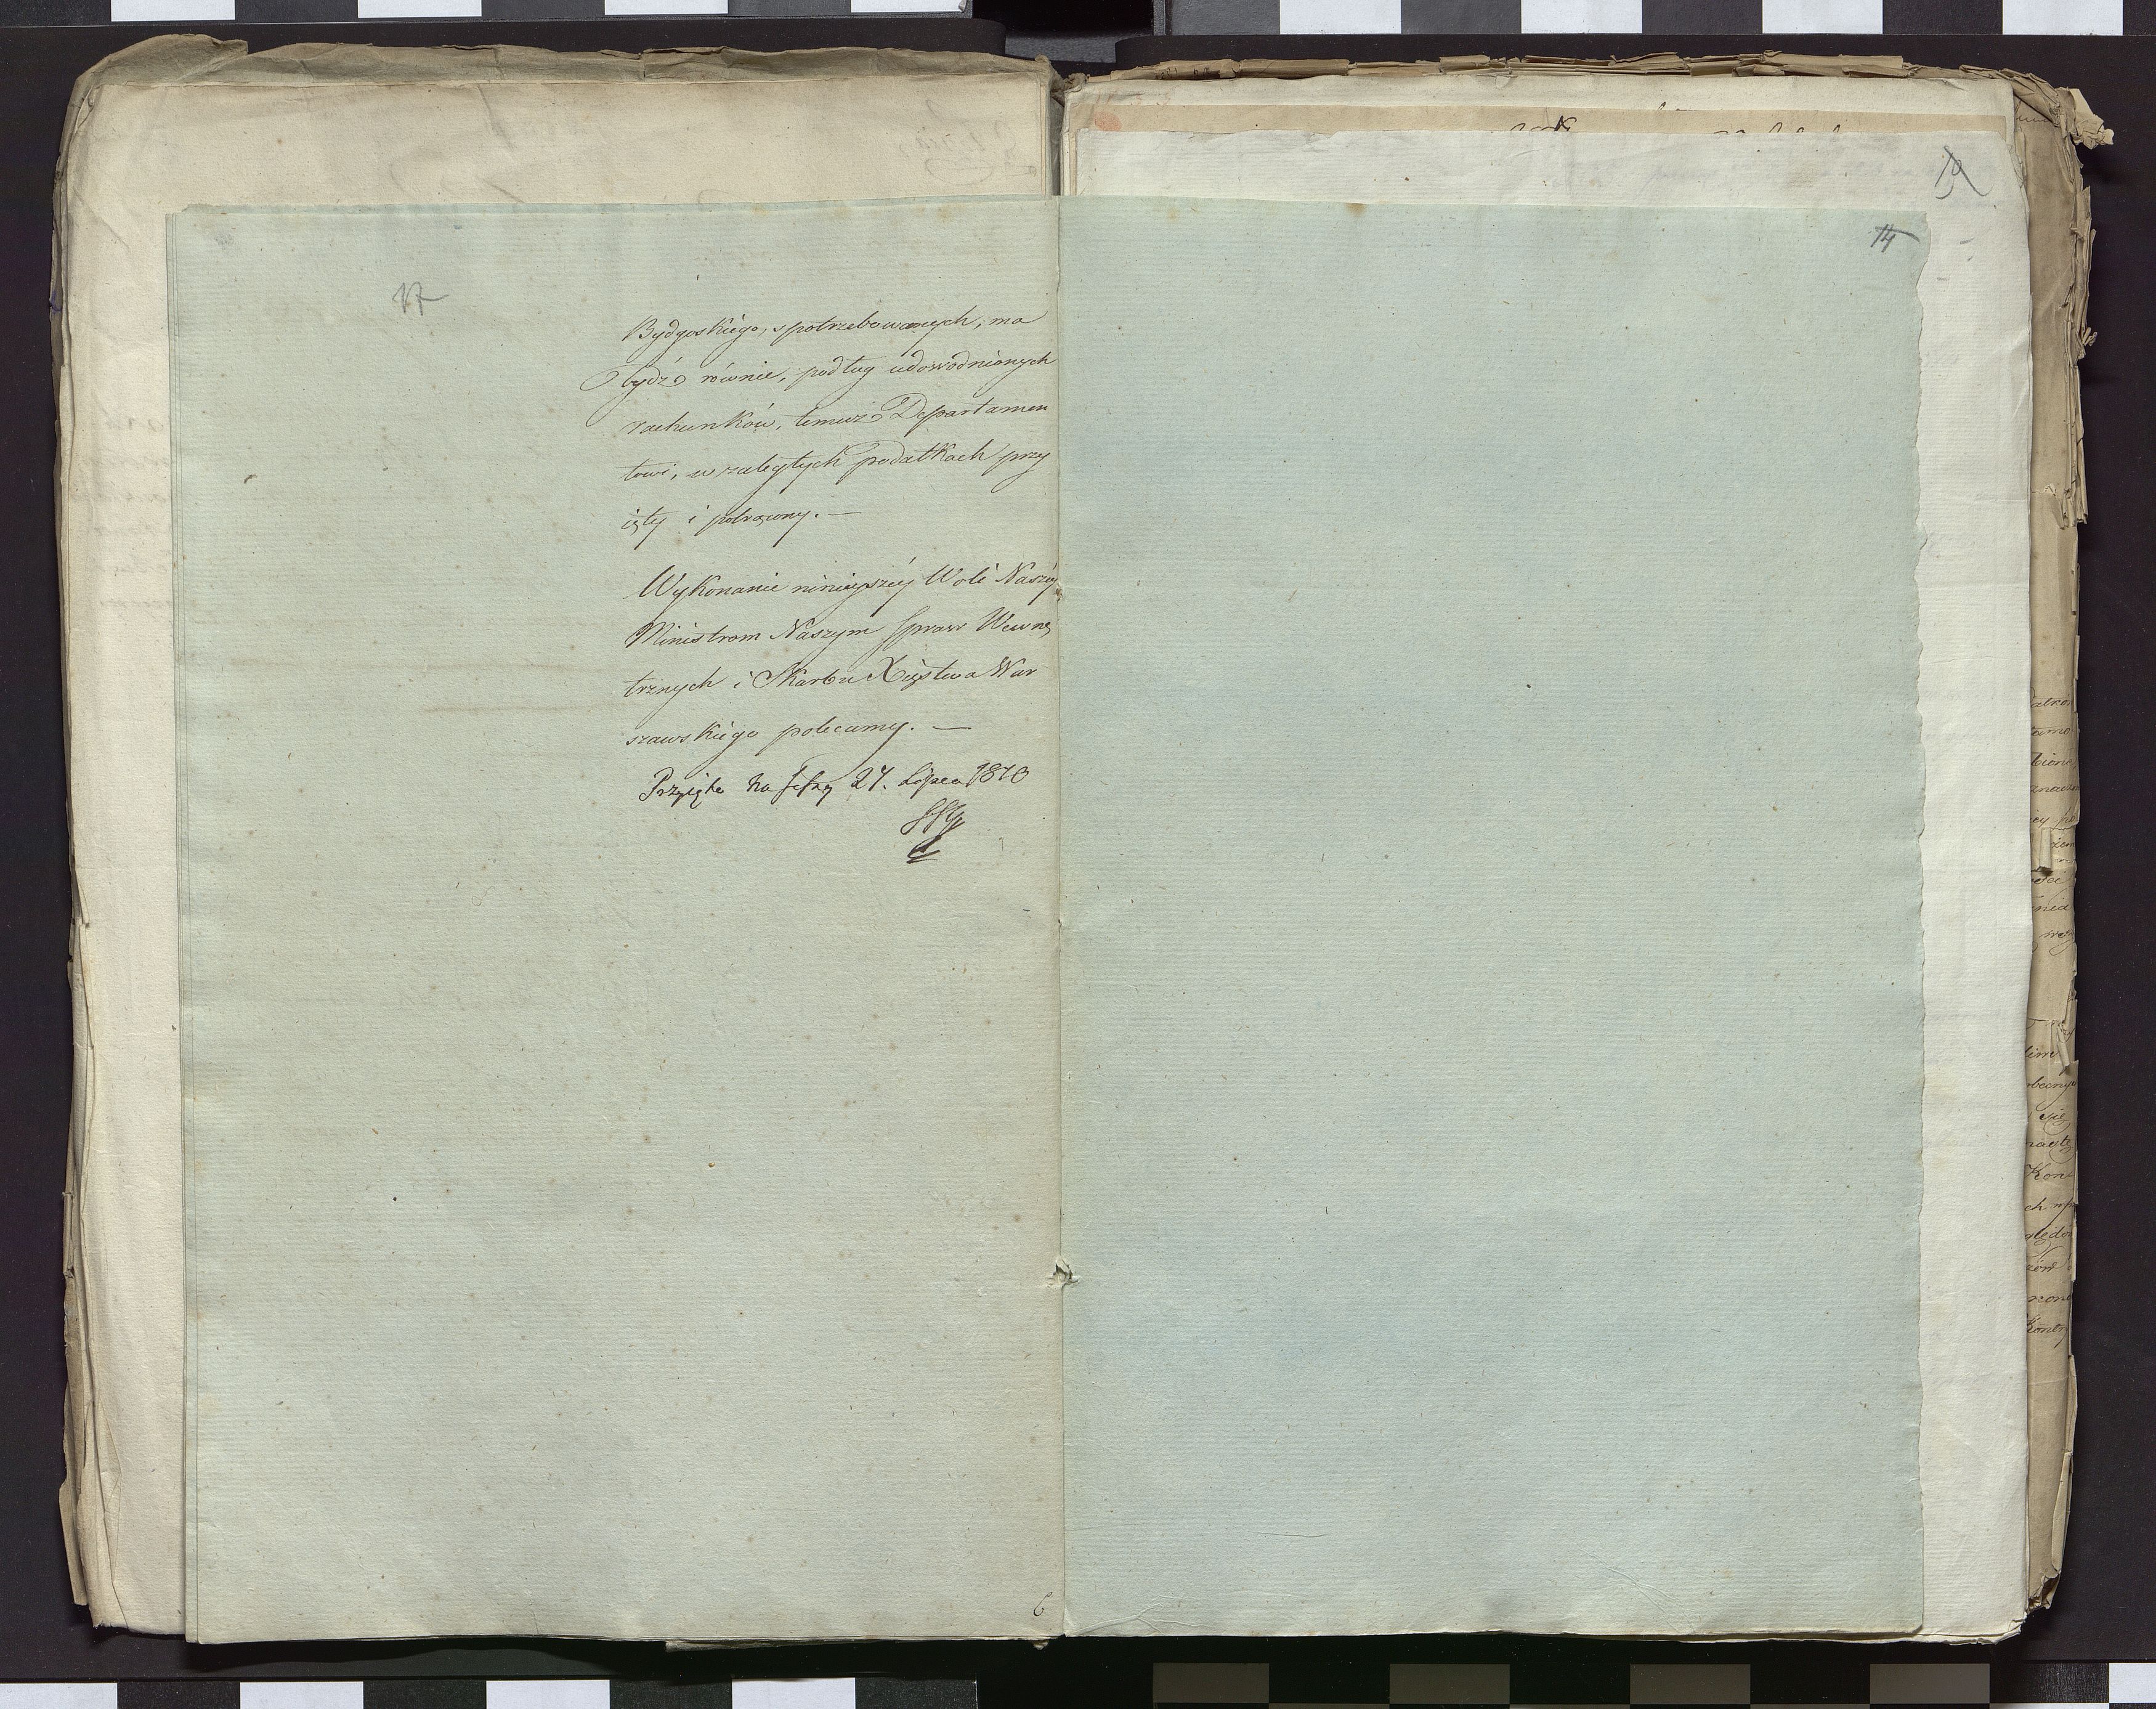 17
Bydgoskiego, spotrzebowanych, ma
bydź równie, podług udowodnionych
rachunków, temuż Departamen
towi, w zaległych podatkach przy
ięty i potrącony. —
Wykonanie ninieyszéy Woli Naszéy
Ministrom Naszym Spraw Wewnę
trznych i Skarbu Xięstwa War
szawskiego polecamy. —
Przyięte na Sessy 27. Lipca 1810
6
19
14